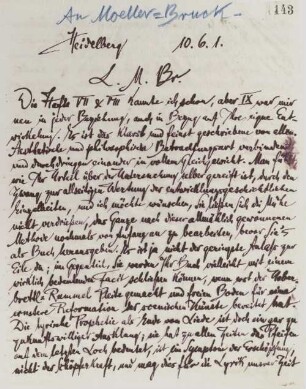 An Moeller-Bruck
143
Heidelberg 10.6.1.
L. M. Br.
Die Hefte VII & VIII kannte ich schon, aber IX war mir
neu in jeder Beziehung, auch in Bezug auf Ihre eigne Ent-
wickelung. Es ist das klarst und feinst geschriebene von allen.
Aesthetische und philosophische Betrachtungsart verbinden
und durchdringen einander in vollem Gleichgewicht. Man fühlt,
wie Ihr Urteil über der Untersuchung selber gereift ist, durch den
Zwang zur allseitigen Wertung der entwicklungsgeschichtlichen
Einzelheiten, und ich möchte wünschen, Sie ließen sich die Mühe
nicht verdrießen, das Ganze nach dieser allmählich gewonnenen
Methode nochmals von Anfang an zu bearbeiten, bevor Sie's
als Buch herausgeben. Es ist ja nicht der geringste Anlaß zur
Eile da; im Gegenteil, Sie werden Ihr Buch vielleicht mit einem
wirklich bedeutenden Facit schließen können, wenn erst der Ueber-
brettl-Rummel Pleite gemacht und freien Boden für eine
ernstere Reformation der scenischen Künste bereitet hat.
Die lyrische Prophetie als Ende vom Liede ist doch ein gar zu
zukunftswilliger Ausklang; sie hat zu allen Zeiten das Pfeifen
auf dem letzten Loch bedeutet, ist ein Symptom der Erschöpfung,
nicht der Schöpferkraft, und mag dies für die Lyrik unserer Zeit